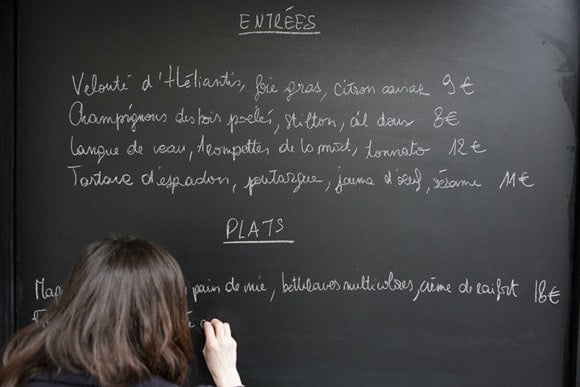 ENTRÉES
Velouté d'Héliantis, foie gras, citron caviar 9 €
Champignons des bois poêlés, stilton, ail doux 8 €
Langue de veau, trompettes de la mort, tonnato 12 €
Tartare d'espadon, poutargue, jaune d'oeuf, sésame 11 €
PLATS
pain de mie, betteraves multicolores, crème de raifort 18 €